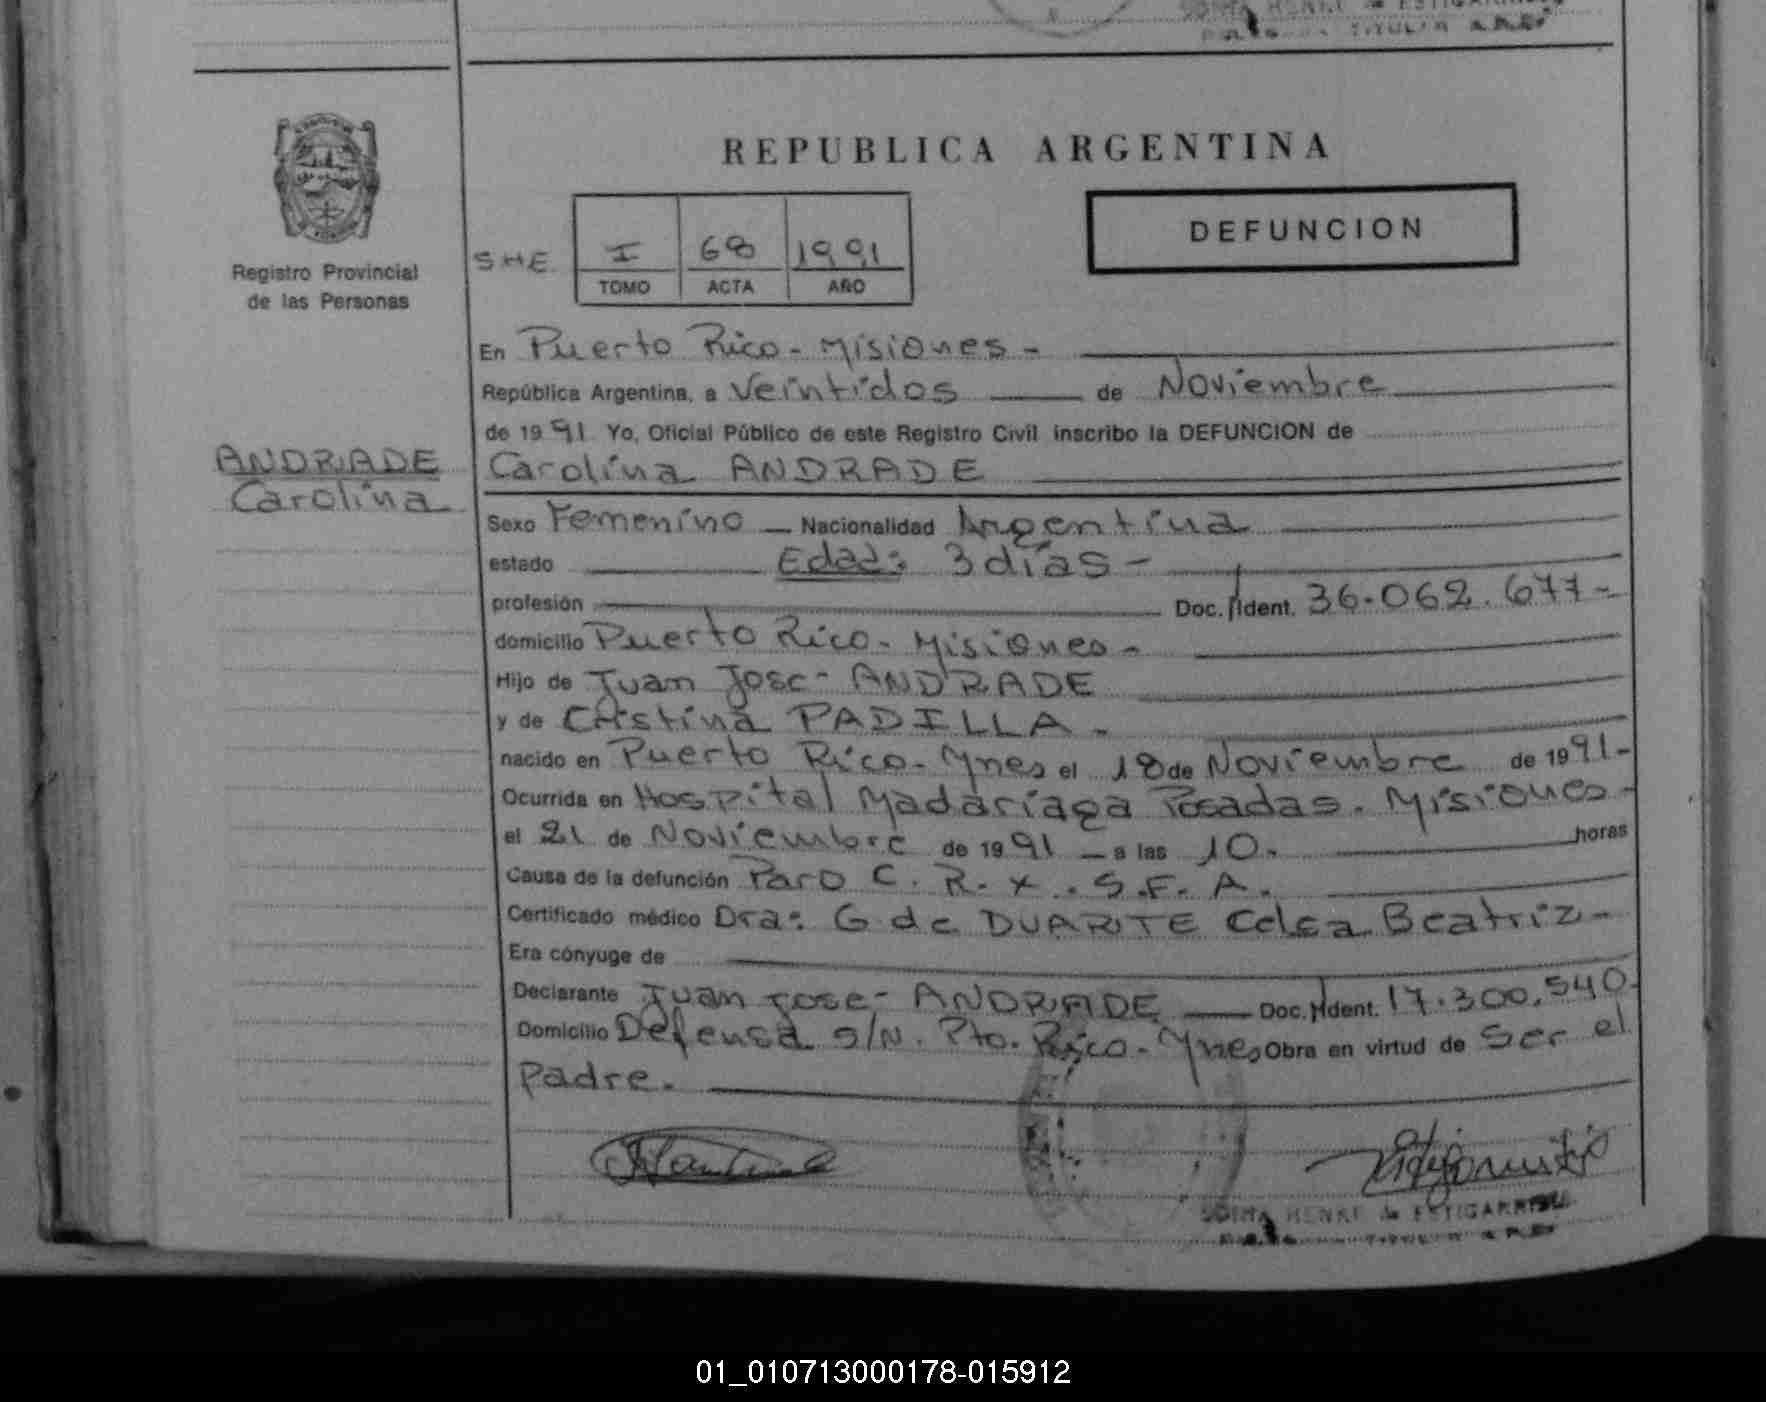 REPUBLICA ARGENTINA
DEFUNCION
SHE
I 68 1991
TOMO ACTA AÑO
Registro Provincial
de las Personas
ANDRADE
Carolina
En Puerto Rico - Misiones -
República Argentina, a Veintidos de Noviembre
de 1991 Yo, Oficial Público de este Registro Civil inscribo la DEFUNCION de
Carolina ANDRADE
Sexo Femenino Nacionalidad Argentina
estado Edad: 3 días -
profesión Doc. Ident. 36.062.677-
domicilio Puerto Rico - Misiones -
Hijo de Juan Jose - ANDRADE
y de Cristina PADILLA.
nacido en Puerto Rico - Mnes el 18 de Noviembre de 1991-
Ocurrida en Hospital Madariaga Posadas. Misiones -
el 21 de Noviembre de 1991 a las 10. horas
Causa de la defunción Paro C. R. x . S.F.A.
Certificado médico Dra: G de DUARTE Celsa Beatriz -
Era cónyuge de
Declarante Juan Jose - ANDRADE Doc. Ident. 17.300.540-
Domicilio Defensa s/N. Pto. Rico - Mnes Obra en virtud de Ser el
Padre.
HENKE de ESTIGARRIBIA
TITULAR
01_010713000178-015912